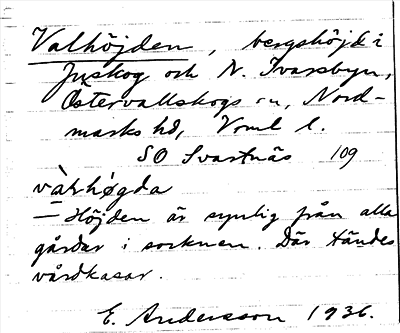 Valhöjden, bergshöjd i
Juskog och N. Ivarsbyn,
Östervallskogs sn, Nord-
marks hd, Vrml l.
SO Svartnäs 109
vàrhøgda
— Höjden är synlig från alla
gårdar i socknen. Där tändes
vårdkasar.
E. Andersson 1936.